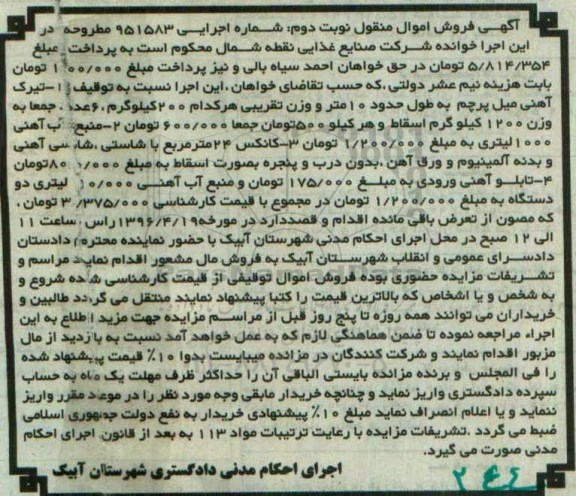 آگهی فروش اموال منقول نوبت دوم: شماره اجرایی ۹۵۱۵۸۳ مطروحه در
این اجرا خوانده شرکت صنایع غذایی نقطه شمال محکوم است به پرداخت مبلغ
۵/۸۱۴/۳۵۴ تومان در حق خواهان احمد سیاه بالی و نیز پرداخت مبلغ تومان
بابت هزینه نیم عشر دولتی ،که حسب تقاضای خواهان ،این اجرا نسبت به توقیف ۱-تیرک
آهنی میل پرچم به طول حدود ۱۰متر و وزن تقریبی هرکدام ۲۰۰کیلوگرم ،۶عدد جمعا به
وزن ۱۲۰۰ کیلو گرم اسقاط و هر کیلو ۵۰۰تومان جمعا ۶۰۰/۰۰۰ تومان ۲-منبع آب آهنی
۱۰۰۰لیتری به مبلغ ۱/۲۰۰/۰۰۰ تومان ۳-کانکس ۲۴مترمربع با شاستی ،شاسی آهنی
و بدنه آلمینیوم و ورق آهن ،بدون درب و پنجره بصورت اسقاط به مبلغ تومان
۴-تابلو آهنی ورودی به مبلغ ۱۷۵/۰۰۰ تومان و منبع آب آهنی لیتری دو
دستگاه به مبلغ ۱/۲۰۰/۰۰۰ تومان در مجموع با قیمت کارشناسی ۳/۳۷۵/۰۰۰ تومان .
که مصون از تعرض باقی مانده اقدام و قصددارد در مورخه۱۳۹۶/۴/۱۹راس ساعت ۱۱
الی ۱۲ صبح در محل اجرای احکام مدنی شهرستان آبیک با حضور نماینده محترم دادستان
دادسرای عمومی و انقلاب شهرستان آبیک به فروش مال مشعور اقدام نماید مراسم و
تشریفات مزایده حضوری بوده فروش اموال توقیفی از قیمت کارشناسی شده شروع و
به شخص و یا اشخاص که بالاترین قیمت را کتبا پیشنهاد نمایند منتقل می گردد طالبین و
خریداران می توانند همه روزه تا پنج روز قبل از مراسم مزایده جهت مزید اطلاع به این
اجراء مراجعه نموده تا ضمن هماهنگی لازم که به عمل خواهد آمد نسبت به بازدید از مال
مزبور اقدام نمایند و شرکت کنندگان در مزانده میبایست بدوا ۱۰٪ قیمت پیشنهاد شده
را فی المجلس و برنده مزانده بایستی الباقی آن را حداکثر ظرف مهلت یک ماه به حساب
سپرده دادگستری واریز نماید و چنانچه خریدار مابقی وجه مورد نظر را در موعد مقرر واریز
ننماید و یا اعلام انصراف نماید مبلغ ۱۰٪ پیشنهادی خریدار به نفع دولت جمهوری اسلامی
ضبط می گردد .تشریفات مزایده با رعایت ترتیبات مواد ۱۱۳ به بعد از قانون اجرای احکام
مدنی صورت می گیرد.
اجرای احکام مدنی دادگستری شهرستان آبیک